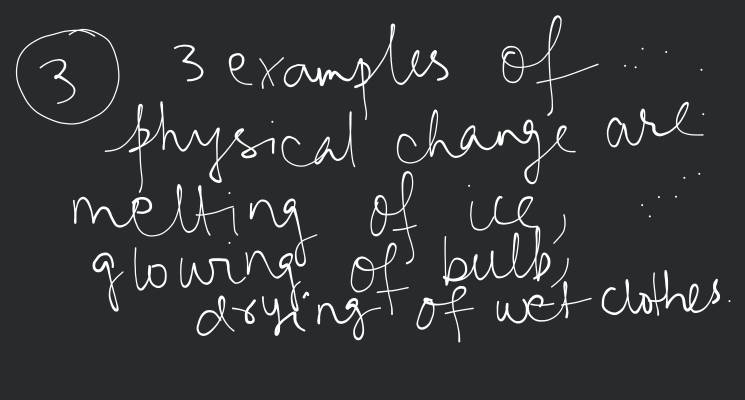 3 3 examples of
physical change are
melting of ice,
glowing of bulb,
drying of wet clothes.